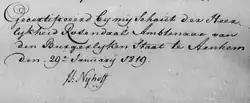 Gecertificeerd by my Schout der Heer
lykheid Rosendaal Ambtenaar van
den Burgerlyken Staat te Arnhem
den 29e January 1819.
Nyhoff